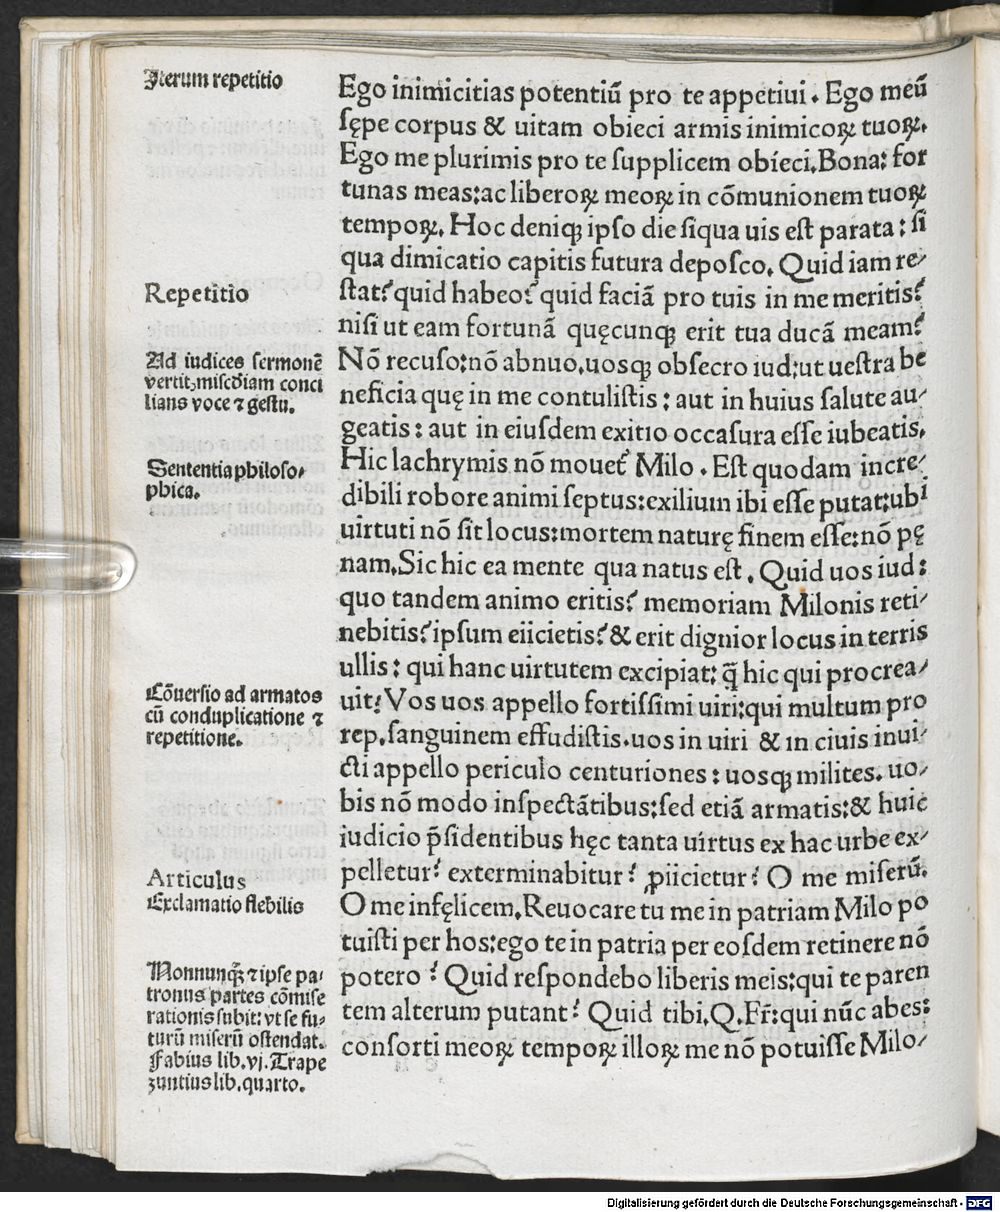 Iterum repetitio
Ego inimicitias potentiũ pro te appetiui. Ego meũ
sępe corpus & uitam obieci armis inimicoꝝ tuoꝝ.
Ego me plurimis pro te supplicem obieci. Bona: for
tunas meas: ac liberoꝝ meoꝝ in cõmunionem tuoꝝ
tempoꝝ. Hoc deniqꝫ ipso die siqua uis est parata: si
qua dimicatio capitis futura deposco. Quid iam re/
Repetitio
stat? quid habeo? quid faciã pro tuis in me meritis?
nisi ut eam fortunã quęcunqꝫ erit tua ducã meam?
Ad iudices sermonẽ
vertit, miscðiam conci
lians voce ⁊ gestu.
Nõ recuso: nõ abnuo. uosqꝫ obsecro iud: ut uestra be
neficia quę in me contulistis: aut in huius salute au/
geatis: aut in eiusdem exitio occasura esse iubeatis.
Sententia philoso/
phica.
Hic lachrymis nõ mouet᷑ Milo. Est quodam incre/
dibili robore animi septus: exilium ibi esse putat: ubi
uirtuti nõ sit locus: mortem naturę finem esse: nõ pę
nam. Sic hic ea mente qua natus est. Quid uos iud:
quo tandem animo eritis? memoriam Milonis reti/
nebitis? ipsum eiicietis? & erit dignior locus in terris
ullis: qui hanc uirtutem excipiat: q̃ hic qui procrea/
Cõuersio ad armatos
cũ conduplicatione ⁊
repetitione.
uit? Vos uos appello fortissimi uiri: qui multum pro
rep. sanguinem effudistis. uos in uiri & in ciuis inui/
cti appello periculo centuriones: uosqꝫ milites. uo/
bis nõ modo inspectãtibus: sed etiã armatis: & huic
iudicio p̃sidentibus hęc tanta uirtus ex hac urbe ex/
Articulus
Exclamatio flebilis
pelletur? exterminabitur? ꝓiicietur? O me miserũ.
O me infęlicem. Reuocare tu me in patriam Milo po
tuisti per hos: ego te in patria per eosdem retinere nõ
Nonnunq̃ ⁊ ipse pa/
tronus partes cõmise
rationis subit: vt se fu/
turũ miserũ ostendat.
Fabius lib. vj. Trape
zuntius lib. quarto.
potero? Quid respondebo liberis meis: qui te paren
tem alterum putant? Quid tibi. Q. Fr̃: qui nũc abes:
consorti meoꝝ tempoꝝ illoꝝ me nõ potuisse Milo/
Digitalisierung gefördert durch die Deutsche Forschungsgemeinschaft - DFG